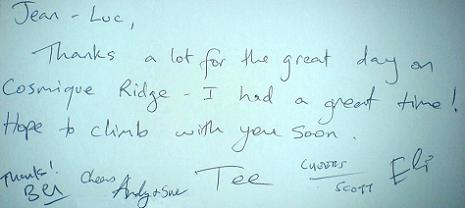 Jean - Luc,
Thanks a lot for the great day on
Cosmique Ridge - I had a great time!
Hope to climb with you soon.
Thanks! Cheers Tee CHEERS Eli
Ben Andy & Sue SCOTT